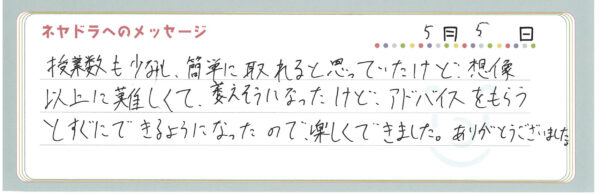 ネヤドラへのメッセージ
5月5日
授業数も少ないし、簡単に取れると思っていたけど、想像
以上に難しくて、萎えそうになったけど、アドバイスをもらう
とすぐにできるようになったので、楽しくできました。ありがとうございました。